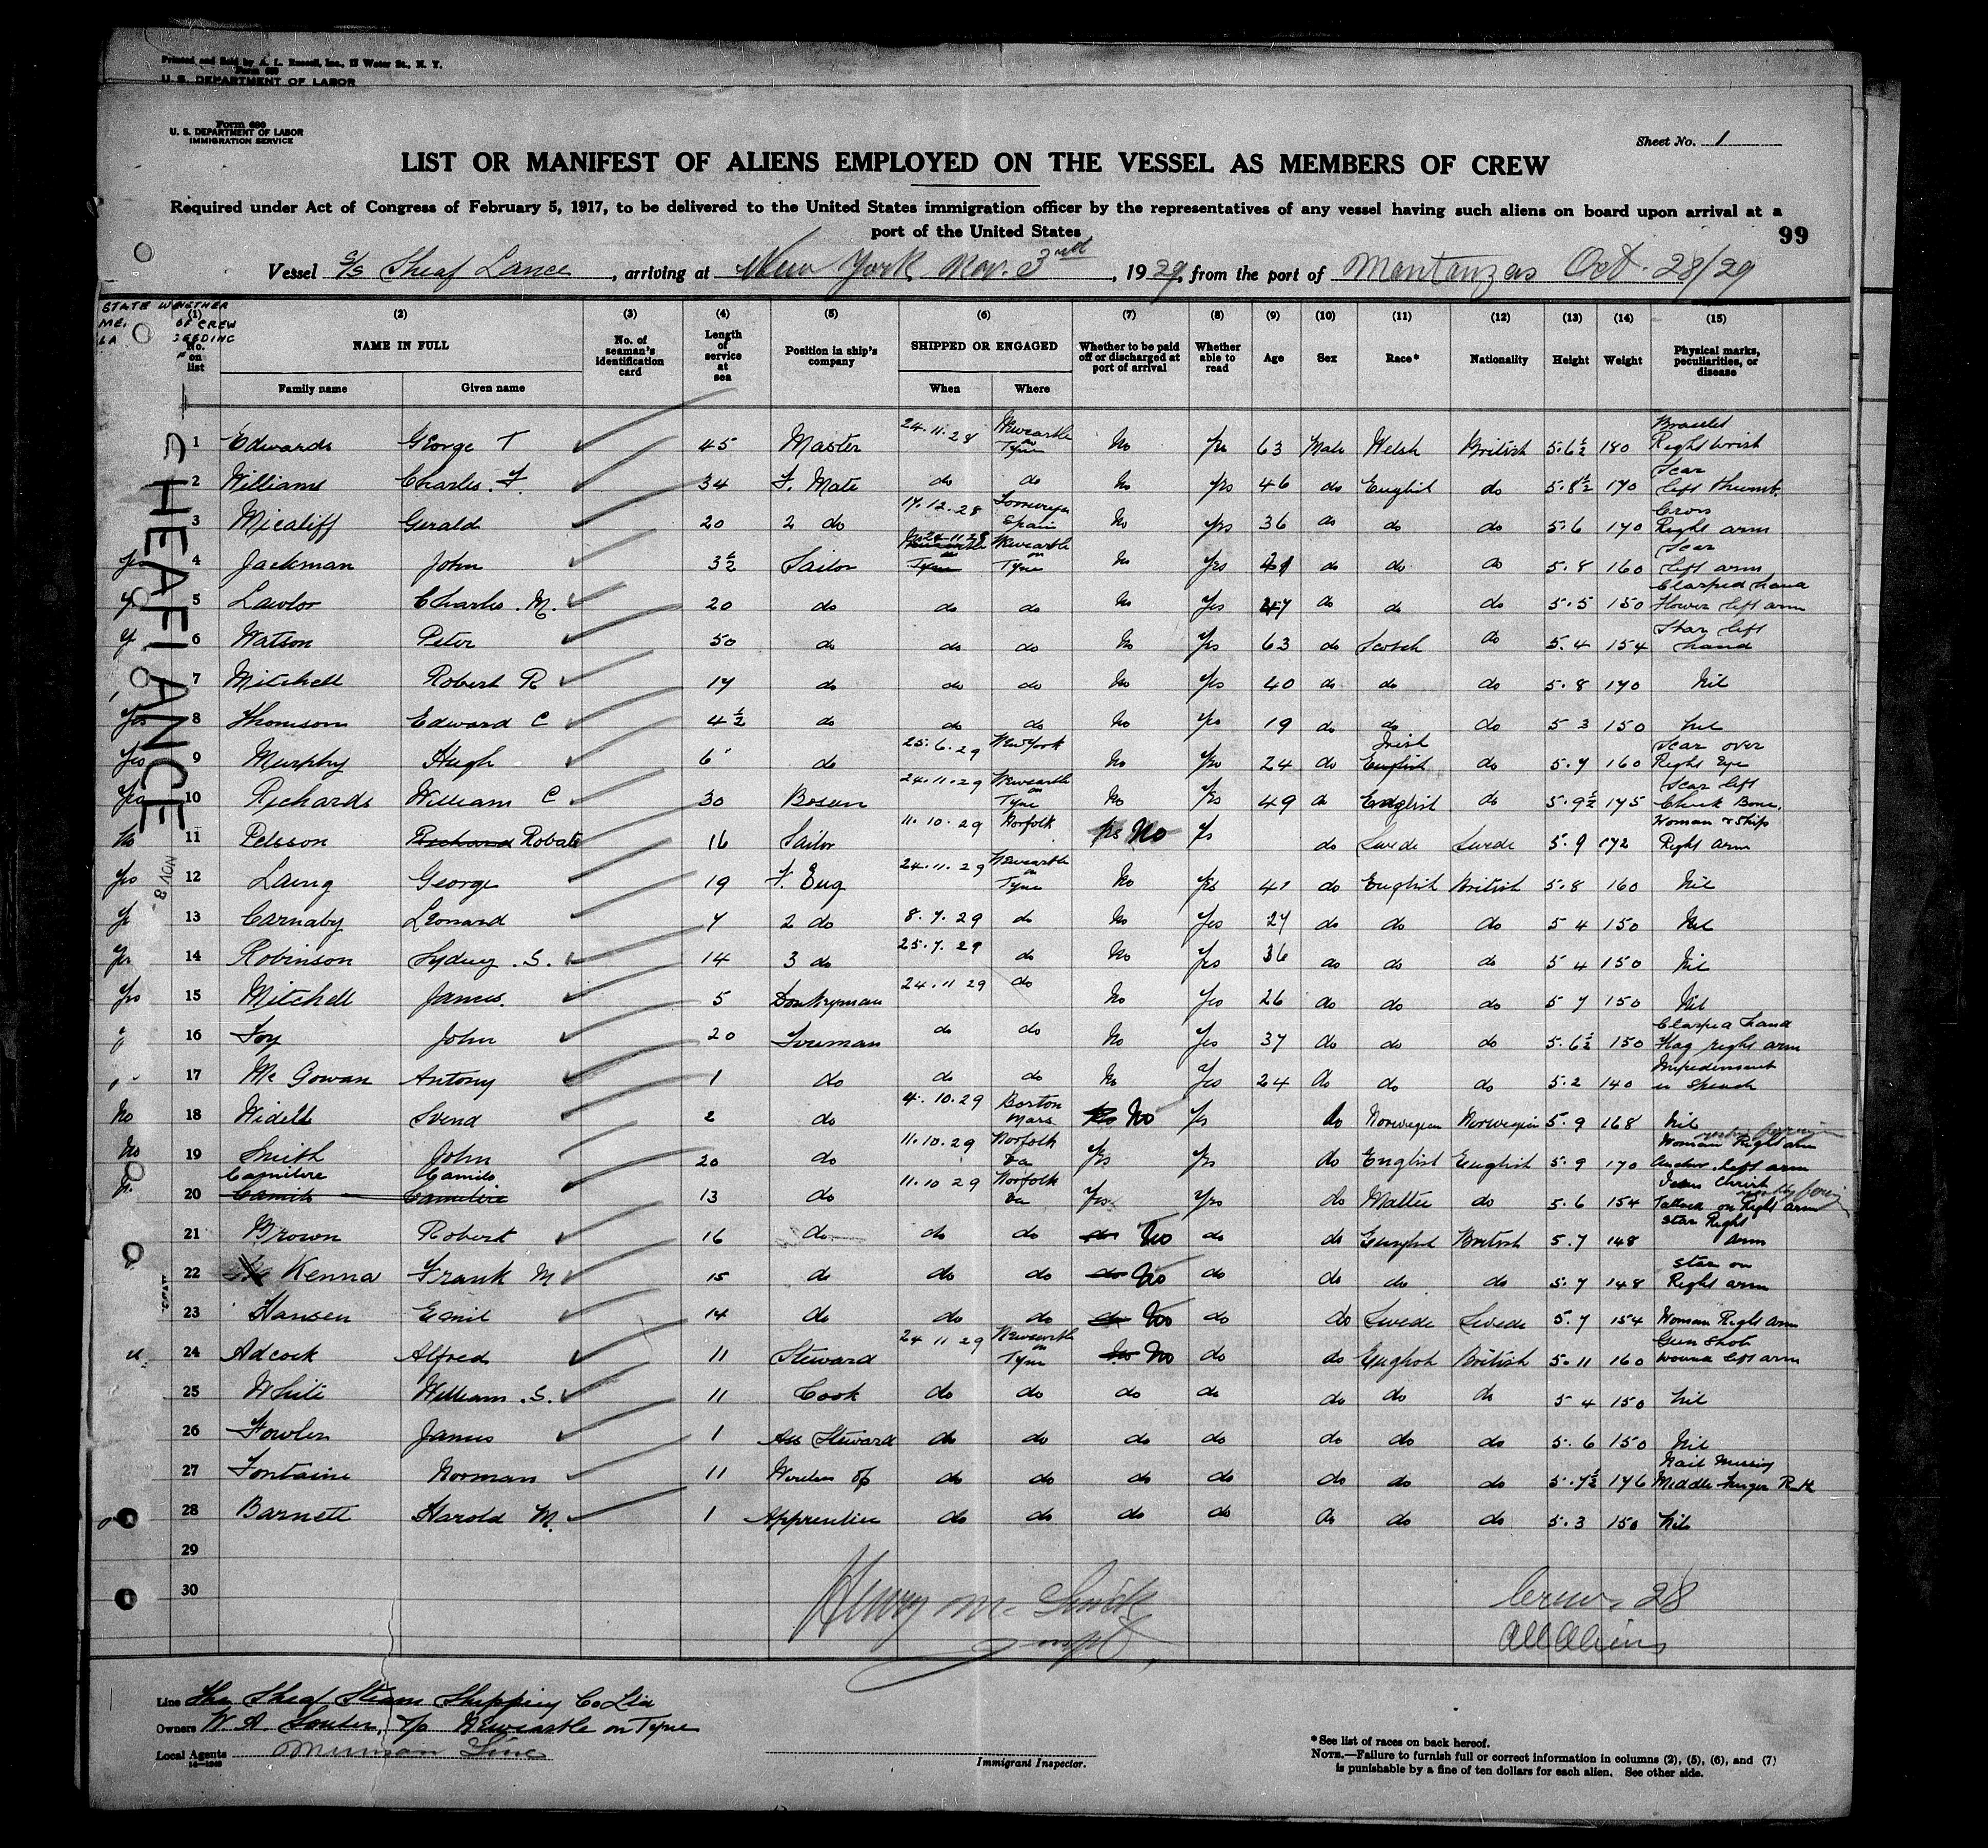 Printed and Sold by A. L. Russell, Inc., 15 Water St., N. Y.
Form 680
U. S. DEPARTMENT OF LABOR
Form 680
U. S. DEPARTMENT OF LABOR
IMMIGRATION SERVICE
Sheet No. 1
LIST OR MANIFEST OF ALIENS EMPLOYED ON THE VESSEL AS MEMBERS OF CREW
Required under Act of Congress of February 5, 1917, to be delivered to the United States immigration officer by the representatives of any vessel having such aliens on board upon arrival at a
port of the United States
99
Vessel S/S Sheaf Lance, arriving at New York Nov. 3rd, 1929, from the port of Mantanzas Oct. 28/29
STATE WHETHER
OF CREW
(1) (2) (3) (4) (5) (6) (7) (8) (9) (10) (11) (12) (13) (14) (15)
No. on list NAME IN FULL No. of seaman's identification card Length of service at sea Position in ship's company SHIPPED OR ENGAGED Whether to be paid off or discharged at port of arrival Whether able to read Age Sex Race* Nationality Height Weight Physical marks, peculiarities, or disease
Family name Given name When Where
SHEAF LANCE
NOV 8
1 Edwards George T 45 Master 24.11.28 Newcastle on Tyne No yes 63 Male Welsh British 5.6½ 180 Bracelet Right wrist
2 Williams Charles. F. 34 F. Mate do do No yes 46 do English do 5.8½ 170 Scar left thumb.
3 Micaliff Gerald 20 2 do 17.12.28 Spain No yes 36 do do do 5.6 170 Cross Right arm
yes 4 Jackman John 3½ Sailor 24-11-28 Newcastle on Tyne No Yes 41 do do do 5.8 160 Scar left arm
y 5 Lawlor Charles. M. 20 do do do No Yes 47 do do do 5.5 150 Clasped hand flower left arm
y 6 Watson Peter 50 do do do No Yes 63 do Scotch do 5.4 154 Star left hand
7 Mitchell Robert R 17 do do do No Yes 40 do do do 5.8 170 Nil
Yes 8 Thomson Edward C 4½ do do do No Yes 19 do do do 5 3 150 Nil
Yes 9 Murphy Hugh 6 do 25.6.29 New York No Yes 24 do Irish English do 5.7 160 Scar over Right Eye
Yes 10 Richards William C 30 Bosun 24.11.29 Newcastle on Tyne No Yes 49 do English do 5.9½ 175 Scar left Cheek Bone.
No 11 Pelsson Richard Robate 16 Sailor 11.10.29 Norfolk yes No Ys do Swede Swede 5.9 172 Woman & Ship Right arm
Yes 12 Laing George 19 F. Eng 24.11.29 Newcastle on Tyne No Yes 41 do English British 5.8 160 Nil
Ye 13 Carnaby Leonard 7 2 do 8.7.29 do No Yes 27 do do do 5 4 150 Nil
Yes 14 Robinson Sydney .S. 14 3 do 25.7.29 do No Yes 36 do do do 5 4 150 Nil
Yes 15 Mitchell James. 5 Donkeyman 24.11 29 do No Yes 26 do do do 5 7 150 Nil
y 16 Foy John 20 Fireman do do No Yes 37 do do do 5.6½ 150 Clasped hand Flag right arm
17 Mc Gowan Antony 1 do do do No Yes 24 do do do 5.2 140 Impediment in Speach
No 18 Widell Svend 2 do 4.10.29 Boston Mass Yes No Ys do Norwegian Norwegian 5.9 168 Nil
No 19 Smith John 20 do 11.10.29 Norfolk Va Yes Yes do English English 5.9 170 Woman Right arm Anchor left arm
20 Camilere Camilo Camilo Camilere 13 do 11.10 29 Norfolk Va Yes Yes do Maltee do 5.6 154 Jesus Christ Tattoo on Right arm
21 Brown Robert 16 do do do do No do do English British 5.7 148 Star Right arm
22 Kenna Frank M 15 do do do do No do do do do 5.7 148 Star on Right arm
23 Hansen Emil 14 do do do do No do do Swede Swede 5.7 154 Woman Right Arm
24 Adcock Alfred 11 Steward 24 11 29 Newcastle on Tyne No No do do English British 5.11 160 Gun Shot wound left arm
25 White William .S. 11 Cook do do do do do do do 5 4 150 Nil
26 Fowler James 1 Ass Steward do do do do do do do 5.6 150 Nil
27 Fontaine Norman 11 Wireless Op do do do do do do do 5.7½ 176 Nail Missing Middle finger R H
28 Barnett Harold M. 1 Apprentice do do do do do do do 5.3 150 Nil
29
30
Henry M. Smith
Inspt.
Crew, 28
All Aliens
Line The Sheaf Steam Shipping Co Ltd
Owners W. A. Souter, Newcastle on Tyne
Local Agents Munson Line
Immigrant Inspector.
*See list of races on back hereof.
NOTE.—Failure to furnish full or correct information in columns (2), (5), (6), and (7)
is punishable by a fine of ten dollars for each alien. See other side.